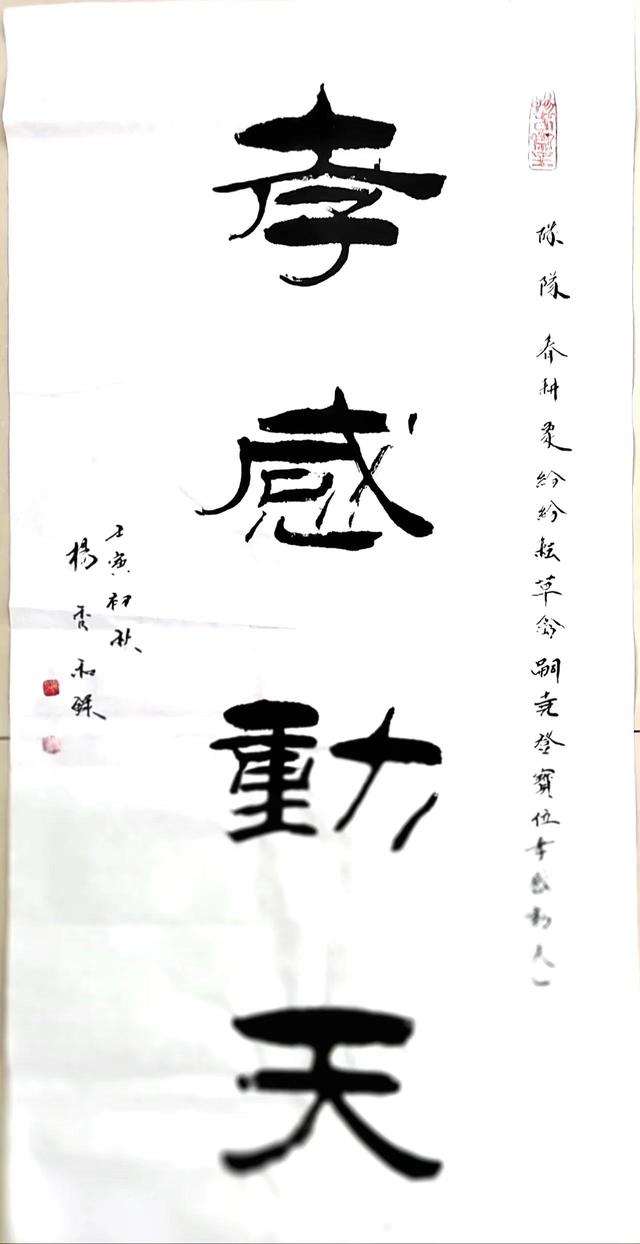 隊隊春耕象紛紛耘草禽嗣堯登寶位孝感動
孝感動天
壬寅初秋
楊和